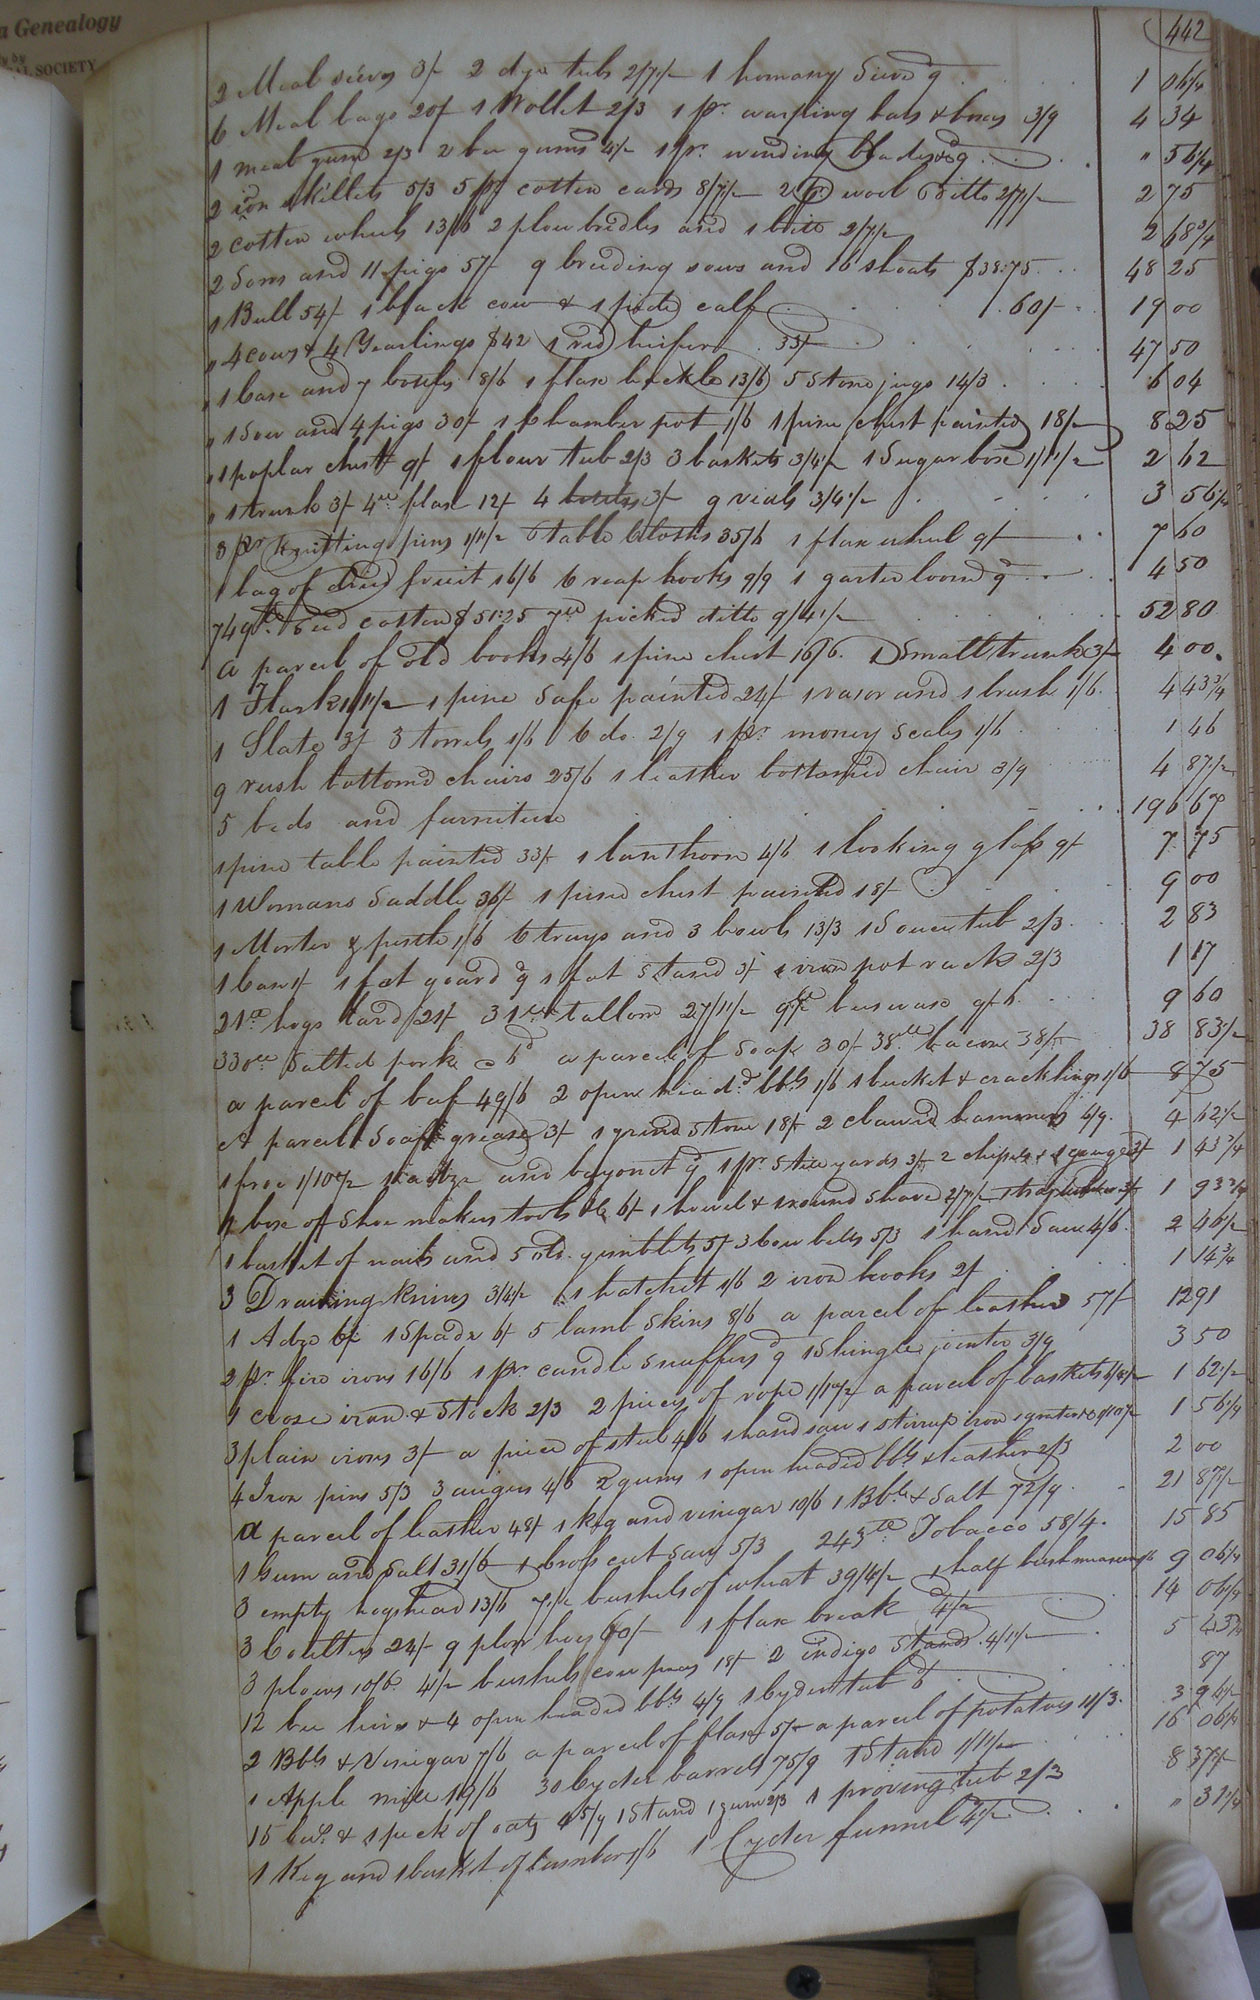 a Genealogy
by
SOCIETY
442
2 Meal sieves 3/ 2 dye tubs 2/7½ 1 homany Sieve 9d 1 06¼
6 Meal bags 20/ 1 Wollet 2/3 1 pr. warping bars & boxes 3/9 4 34
1 meal gum 2/3 2 bee gums 4½ 1 pr. winding blades 9d " 56¼
2 iron skillets 5/3 5 pr cotton cards 8/7½ 2 pr wool Ditto 2/7½ 2 75
2 cotton wheels 13/6 2 plow bridles and 1 bitt 2/7½ 2 68¾
2 Sows and 11 pigs 57/ 9 breeding sows and 16 shoats $38:75 48 25
1 Bull 54/ 1 black cow & 1 pided calf 60/ 19 00
" 4 cows & 4 Yearlings $42 1 red heifer 33/ 47 50
" 1 Case and 7 bottles 8/6 1 flax hackle 13/6 5 Stone jugs 14/3 6 04
" 1 Sow and 4 pigs 30/ 1 Chamber pot 1/6 1 pine chest painted 18/ 8 25
" 1 poplar chest 9/ 1 flour tub 2/3 3 baskets 3/4½ 1 Sugar box 1/1½ 2 62
" 1 trunk 3/ 4 flax 12/ 4 bottles 3/ 9 vials 3/4½ 3 56¼
3 pr Knitting pins 1/1½ Table Cloths 35/6 1 flax wheel 9/ 7 60
1 bag of dried fruit 16/6 6 reap hooks 9/9 1 garter loom 9d 4 50
749 Seed cotton $51:25 7 picked ditto 9/4½ 52 80
a parcel of old books 4/6 1 pine chest 16/6. 1 Small trunk 3/ 4 00.
1 Flask 1/1½ 1 pine Safe painted 24/ 1 rasor and 1 brush 1/6. 4 43¾
1 Slate 3/ 3 towels 1/6 6 do. 2/9 1 pr. money Scales 1/6 1 46
9 rush bottomd chairs 25/6 1 leather bottomed chair 3/9 4 87½
5 beds and furniture 196 67
1 pine table painted 33/ 1 lanthorn 4/6 1 looking glass 9/ 7 75
1 Womans Saddle 36/ 1 pine chest painted 18/ 9 00
1 Morter & pestle 1/6 6 trays and 3 bowls 13/3 1 Souce tub 2/3 2 83
1 Can 1/ 1 fat goard 9d 1 fat Stand 3/ 1 iron pot rack 2/3 1 17
21 hogs lard 21/ 31 tallow 27/1½ 9½ beeswax 9/6 9 60
330 Salted pork @ 6d a parcel of Soap 30/ 38 bacon 38/ 38 83½
a parcel of beef 49/6 2 open headd. bbls 1/6 1 bucket & cracklings 1/6 8 75
A parcel Soap grease 3/ 1 grind Stone 18/ 2 clawed hammers 4/9. 4 62½
1 froe 1/10½ 1 adze and bayonet 9d 1 pr. Stillyards 3/ 2 chisels & 1 gouge 3/ 1 43¾
1 box of Shoe makers tools 6/ 1 howel & 1 round Shave 2/7½ 1 93¾
1 basket of nails and 5 old gimblets 5/ 3 cow bells 5/3 1 hand Saw 4/6. 2 46½
3 Drawing Knives 3/4½ 1 hatchet 1/6 2 iron hooks 2/ 1 14¾
1 Adze 6/ 1 Spade 6/ 5 lamb Skins 8/6 a parcel of leather 57/ 12 91
2 pr. fire irons 16/6 1 pr. candle Snuffers 9d 1 Shingle jointer 3/9 3 50
1 croze iron & Stock 2/3 2 pieces of rope 1/10½ a parcel of baskets 1 62½
3 plain irons 3/ a piece of steel 4/6 1 handsaw 1 stirrup iron 1 grater 1/10½ 1 56¼
4 Iron pins 5/3 3 augers 4/6 2 gums 1 open headed bbl & leather 2/3 2 00
a parcel of leather 48/ 1 keg and vinegar 10/6 1 Bble & Salt 72/9 21 87½
1 Gum and Salt 31/6 1 cross cut Saw 5/3 243 Tobacco 58/4. 15 85
3 empty hogshead 13/6 7½ bushels of wheat 39/4½ 1 half bush measure 9 06¼
3 Coulters 24/ 9 plow hoes 60/ 1 flax break 4/½ 14 06¼
3 plows 10/6. 4½ bushels cow peas 18/ 2 indigo Stands 4/1½ 5 43¾
12 bee hives & 4 open headed bbls 4/9 1 Cyder tub 6d 87
2 Bbls & Vinegar 7/6 a parcel of flax 5/ a parcel of potatoes 11/3. 3 96½
1 Apple mill 19/6 30 Cyder barrels 75/9 1 Stand 1/1½ 16 06¼
15 bus. & 1 peck of oats 45/9 1 Stand 1 gum 2/3 1 proving tub 2/3 8 37½
1 Keg and 1 basket of lumber 1/6 1 Cyder funnel 4½ " 31¼